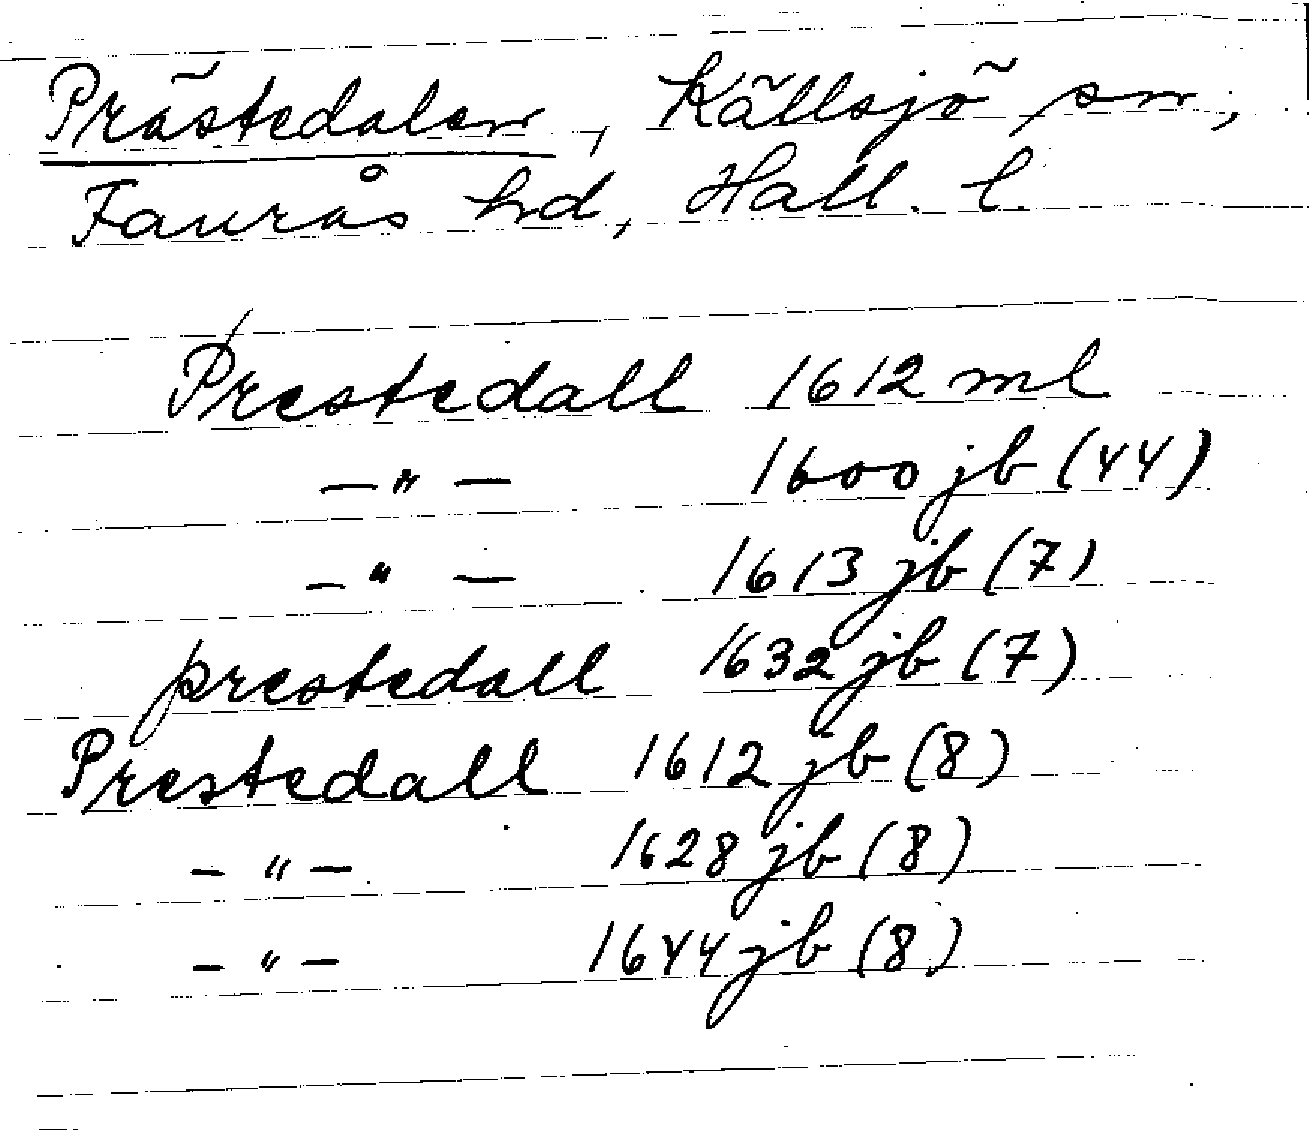 Prästedalen, Källsjö sn,
Faurås hd, Hall. l.
Prestedall 1612 ml
— " — 1600 jb (44)
— " — 1613 jb (7)
prestedall 1632 jb (7)
Prestedall 1612 jb (8)
— " — 1628 jb (8)
— " — 1644 jb (8)